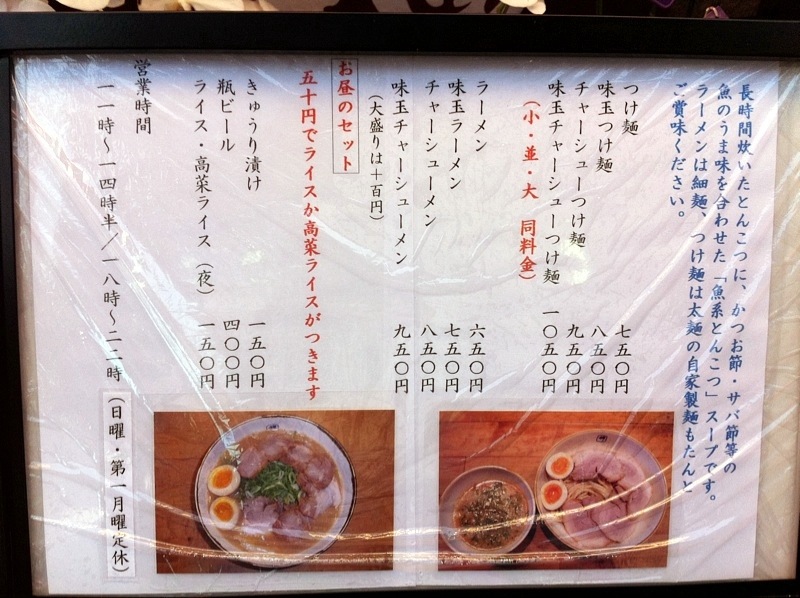 長時間炊いたとんこつに、かつお節・サバ節等の
魚のうま味を合わせた「魚系とんこつ」スープです。
ラーメンは細麺、つけ麺は太麺の自家製麺もたんと
ご賞味ください。
つけ麺 七五〇円
味玉つけ麺 八五〇円
チャーシューつけ麺 九五〇円
味玉チャーシューつけ麺 一〇五〇円
(小・並・大 同料金)
ラーメン 六五〇円
味玉ラーメン 七五〇円
チャーシューメン 八五〇円
味玉チャーシューメン 九五〇円
(大盛りは+百円)
お昼のセット
五十円でライスか高菜ライスがつきます
きゅうり漬け 一五〇円
瓶ビール 四〇〇円
ライス・高菜ライス(夜) 一五〇円
営業時間
一一時〜一四時半/一八時〜二二時
(日曜・第一月曜定休)